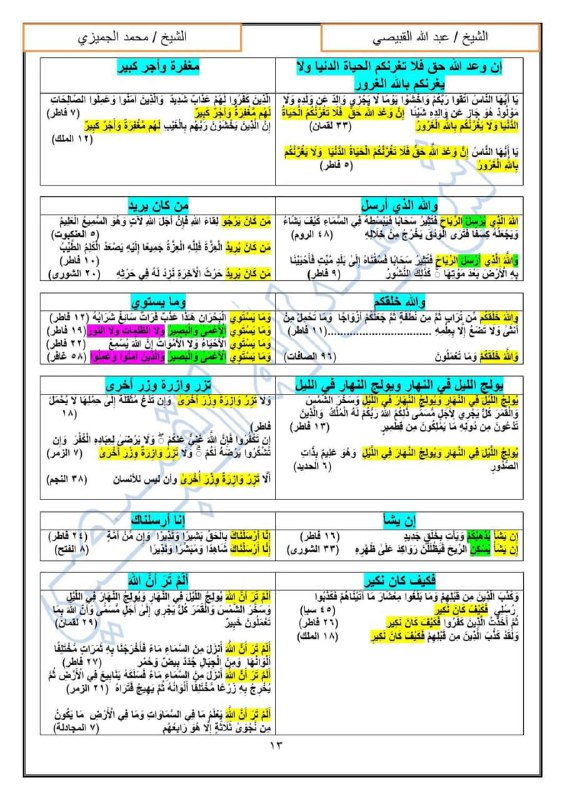 الشيخ / عبد الله القبيصي
الشيخ / محمد الجميزي
إن وعد الله حق فلا تغرنكم الحياة الدنيا ولا
يغرنكم بالله الغرور
يَا أَيُّهَا النَّاسُ اتَّقُوا رَبَّكُمْ وَاخْشَوْا يَوْمًا لَا يَجْزِي وَالِدٌ عَن وَلَدِهِ وَلَا
مَوْلُودٌ هُوَ جَازٍ عَن وَالِدِهِ شَيْئًا إِنَّ وَعْدَ اللَّهِ حَقٌّ فَلَا تَغُرَّنَّكُمُ الْحَيَاةُ
الدُّنْيَا وَلَا يَغُرَّنَّكُم بِاللَّهِ الْغَرُورُ (٣٣ لقمان)
يَا أَيُّهَا النَّاسُ إِنَّ وَعْدَ اللَّهِ حَقٌّ فَلَا تَغُرَّنَّكُمُ الْحَيَاةُ الدُّنْيَا وَلَا يَغُرَّنَّكُم
بِاللَّهِ الْغَرُورُ (٥ فاطر)
مغفرة وأجر كبير
الَّذِينَ كَفَرُوا لَهُمْ عَذَابٌ شَدِيدٌ وَالَّذِينَ آمَنُوا وَعَمِلُوا الصَّالِحَاتِ
لَهُم مَّغْفِرَةٌ وَأَجْرٌ كَبِيرٌ (٧ فاطر)
إِنَّ الَّذِينَ يَخْشَوْنَ رَبَّهُم بِالْغَيْبِ لَهُم مَّغْفِرَةٌ وَأَجْرٌ كَبِيرٌ
(١٢ الملك)
والله الذي أرسل
اللَّهُ الَّذِي يُرْسِلُ الرِّيَاحَ فَتُثِيرُ سَحَابًا فَيَبْسُطُهُ فِي السَّمَاءِ كَيْفَ يَشَاءُ
وَيَجْعَلُهُ كِسَفًا فَتَرَى الْوَدْقَ يَخْرُجُ مِنْ خِلَالِهِ (٤٨ الروم)
وَاللَّهُ الَّذِي أَرْسَلَ الرِّيَاحَ فَتُثِيرُ سَحَابًا فَسُقْنَاهُ إِلَى بَلَدٍ مَّيِّتٍ فَأَحْيَيْنَا
بِهِ الْأَرْضَ بَعْدَ مَوْتِهَا ۚ كَذَلِكَ النُّشُورُ (٩ فاطر)
من كان يريد
مَن كَانَ يَرْجُو لِقَاءَ اللَّهِ فَإِنَّ أَجَلَ اللَّهِ لَآتٍ وَهُوَ السَّمِيعُ الْعَلِيمُ
(٥ العنكبوت)
مَن كَانَ يُرِيدُ الْعِزَّةَ فَلِلَّهِ الْعِزَّةُ جَمِيعًا إِلَيْهِ يَصْعَدُ الْكَلِمُ الطَّيِّبُ
(١٠ فاطر)
مَن كَانَ يُرِيدُ حَرْثَ الْآخِرَةِ نَزِدْ لَهُ فِي حَرْثِهِ (٢٠ الشورى)
والله خلقكم
وَاللَّهُ خَلَقَكُم مِّن تُرَابٍ ثُمَّ مِن نُّطْفَةٍ ثُمَّ جَعَلَكُمْ أَزْوَاجًا وَمَا تَحْمِلُ مِنْ
أُنثَى وَلَا تَضَعُ إِلَّا بِعِلْمِهِ ........................(١١ فاطر)
وَاللَّهُ خَلَقَكُمْ وَمَا تَعْمَلُونَ (٩٦ الصافات)
وما يستوي
وَمَا يَسْتَوِي الْبَحْرَانِ هَذَا عَذْبٌ فُرَاتٌ سَائِغٌ شَرَابُهُ (١٢ فاطر)
وَمَا يَسْتَوِي الْأَعْمَى وَالْبَصِيرُ وَلَا الظُّلُمَاتُ وَلَا النُّورُ (١٩ فاطر)
وَمَا يَسْتَوِي الْأَحْيَاءُ وَلَا الْأَمْوَاتُ إِنَّ اللَّهَ يُسْمِعُ (٢٢ فاطر)
وَمَا يَسْتَوِي الْأَعْمَى وَالْبَصِيرُ وَالَّذِينَ آمَنُوا وَعَمِلُوا (٥٨ غافر)
يولج الليل في النهار ويولج النهار في الليل
يُولِجُ اللَّيْلَ فِي النَّهَارِ وَيُولِجُ النَّهَارَ فِي اللَّيْلِ وَسَخَّرَ الشَّمْسَ
وَالْقَمَرَ كُلٌّ يَجْرِي لِأَجَلٍ مُّسَمًّى ذَلِكُمُ اللَّهُ رَبُّكُمْ لَهُ الْمُلْكُ وَالَّذِينَ
تَدْعُونَ مِن دُونِهِ مَا يَمْلِكُونَ مِن قِطْمِيرٍ (١٣ فاطر)
يُولِجُ اللَّيْلَ فِي النَّهَارِ وَيُولِجُ النَّهَارَ فِي اللَّيْلِ وَهُوَ عَلِيمٌ بِذَاتِ
الصُّدُورِ (٦ الحديد)
تزر وازرة وزر أخرى
وَلَا تَزِرُ وَازِرَةٌ وِزْرَ أُخْرَى وَإِن تَدْعُ مُثْقَلَةٌ إِلَى حِمْلِهَا لَا يُحْمَلْ
(١٨ فاطر)
إِن تَكْفُرُوا فَإِنَّ اللَّهَ غَنِيٌّ عَنكُمْ ۖ وَلَا يَرْضَى لِعِبَادِهِ الْكُفْرَ وَإِن
تَشْكُرُوا يَرْضَهُ لَكُمْ ۗ وَلَا تَزِرُ وَازِرَةٌ وِزْرَ أُخْرَى (٧ الزمر)
أَلَّا تَزِرُ وَازِرَةٌ وِزْرَ أُخْرَى وأن ليس للأنسان (٣٨ النجم)
إن يشأ
إِن يَشَأْ يُذْهِبْكُمْ وَيَأْتِ بِخَلْقٍ جَدِيدٍ (١٦ فاطر)
إِن يَشَأْ يُسْكِنِ الرِّيحَ فَيَظْلَلْنَ رَوَاكِدَ عَلَى ظَهْرِهِ (٣٣ الشورى)
إنا أرسلناك
إِنَّا أَرْسَلْنَاكَ بِالْحَقِّ بَشِيرًا وَنَذِيرًا وَإِن مِّنْ أُمَّةٍ (٢٤ فاطر)
إِنَّا أَرْسَلْنَاكَ شَاهِدًا وَمُبَشِّرًا وَنَذِيرًا (٨ الفتح)
فكيف كان نكير
وَكَذَّبَ الَّذِينَ مِن قَبْلِهِمْ وَمَا بَلَغُوا مِعْشَارَ مَا آتَيْنَاهُمْ فَكَذَّبُوا
رُسُلِي فَكَيْفَ كَانَ نَكِيرِ (٤٥ سبأ)
ثُمَّ أَخَذْتُ الَّذِينَ كَفَرُوا فَكَيْفَ كَانَ نَكِيرِ (٢٦ فاطر)
وَلَقَدْ كَذَّبَ الَّذِينَ مِن قَبْلِهِمْ فَكَيْفَ كَانَ نَكِيرِ (١٨ الملك)
أَلَمْ تَرَ أَنَّ اللَّهَ
أَلَمْ تَرَ أَنَّ اللَّهَ يُولِجُ اللَّيْلَ فِي النَّهَارِ وَيُولِجُ النَّهَارَ فِي اللَّيْلِ
وَسَخَّرَ الشَّمْسَ وَالْقَمَرَ كُلٌّ يَجْرِي إِلَى أَجَلٍ مُّسَمًّى وَأَنَّ اللَّهَ بِمَا
تَعْمَلُونَ خَبِيرٌ (٢٩ لقمان)
أَلَمْ تَرَ أَنَّ اللَّهَ أَنزَلَ مِنَ السَّمَاءِ مَاءً فَأَخْرَجْنَا بِهِ ثَمَرَاتٍ مُّخْتَلِفًا
أَلْوَانُهَا وَمِنَ الْجِبَالِ جُدَدٌ بِيضٌ وَحُمْرٌ (٢٧ فاطر)
أَلَمْ تَرَ أَنَّ اللَّهَ أَنزَلَ مِنَ السَّمَاءِ مَاءً فَسَلَكَهُ يَنَابِيعَ فِي الْأَرْضِ ثُمَّ
يُخْرِجُ بِهِ زَرْعًا مُّخْتَلِفًا أَلْوَانُهُ ثُمَّ يَهِيجُ فَتَرَاهُ (٢١ الزمر)
أَلَمْ تَرَ أَنَّ اللَّهَ يَعْلَمُ مَا فِي السَّمَاوَاتِ وَمَا فِي الْأَرْضِ مَا يَكُونُ
مِن نَّجْوَى ثَلَاثَةٍ إِلَّا هُوَ رَابِعُهُمْ (٧ المجادلة)
١٣